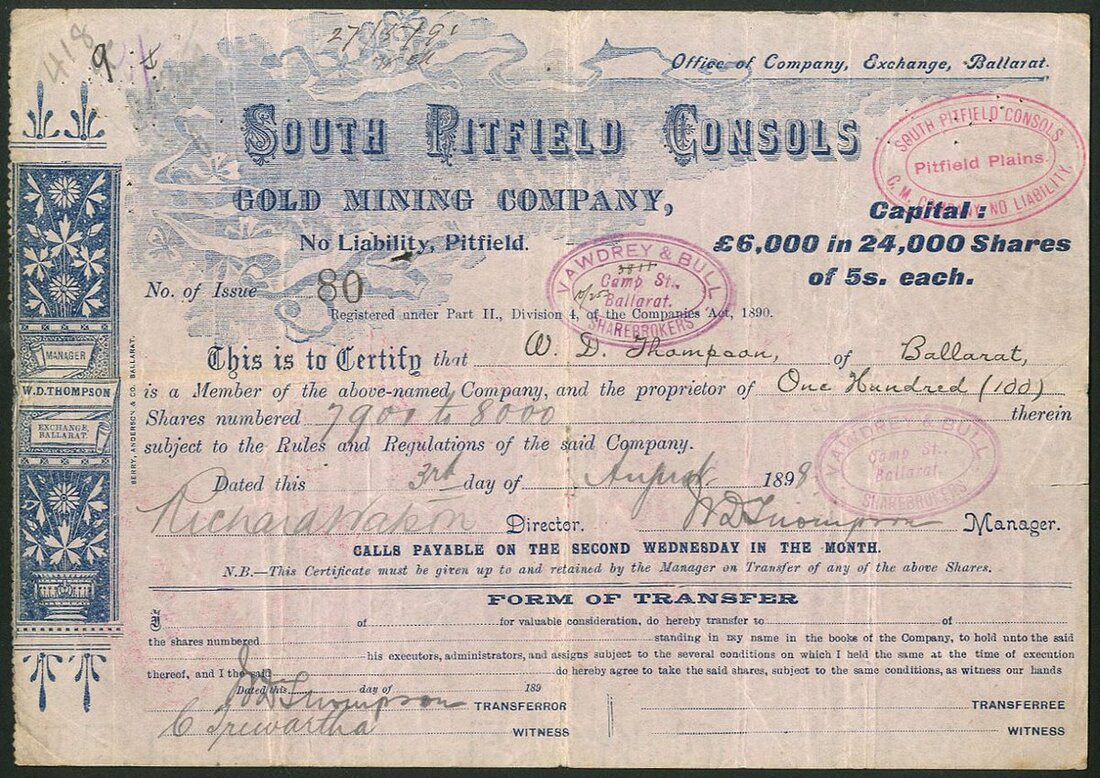 418
9
Office of Company, Exchange, Ballarat.
SOUTH PITFIELD CONSOLS
GOLD MINING COMPANY,
No Liability, Pitfield.
SOUTH PITFIELD CONSOLS
Pitfield Plains.
G. M. COMPANY NO LIABILITY.
Capital:
£6,000 in 24,000 Shares
of 5s. each.
No. of Issue 80
VAWDREY & BULL
Camp St.,
Ballarat.
SHAREBROKERS
Registered under Part II., Division 4, of the Companies Act, 1890.
This is to Certify that W. D. Thompson, of Ballarat,
is a Member of the above-named Company, and the proprietor of One Hundred (100)
Shares numbered 7900 to 8000 therein
subject to the Rules and Regulations of the said Company.
VAWDREY & BULL
Camp St.,
Ballarat.
SHAREBROKERS
Dated this 3rd day of August 1898
Richard Watson Director. W D Thompson Manager.
CALLS PAYABLE ON THE SECOND WEDNESDAY IN THE MONTH.
N.B.—This Certificate must be given up to and retained by the Manager on Transfer of any of the above Shares.
FORM OF TRANSFER
I of for valuable consideration, do hereby transfer to of
the shares numbered standing in my name in the books of the Company, to hold unto the said
his executors, administrators, and assigns subject to the several conditions on which I held the same at the time of execution
thereof, and I the said do hereby agree to take the said shares, subject to the same conditions, as witness our hands
Dated this day of 189
W D Thompson TRANSFEROR TRANSFERREE
C Trewartha WITNESS WITNESS
MANAGER
W.D.THOMPSON
EXCHANGE,
BALLARAT.
BERRY, ANDERSON & CO. BALLARAT.